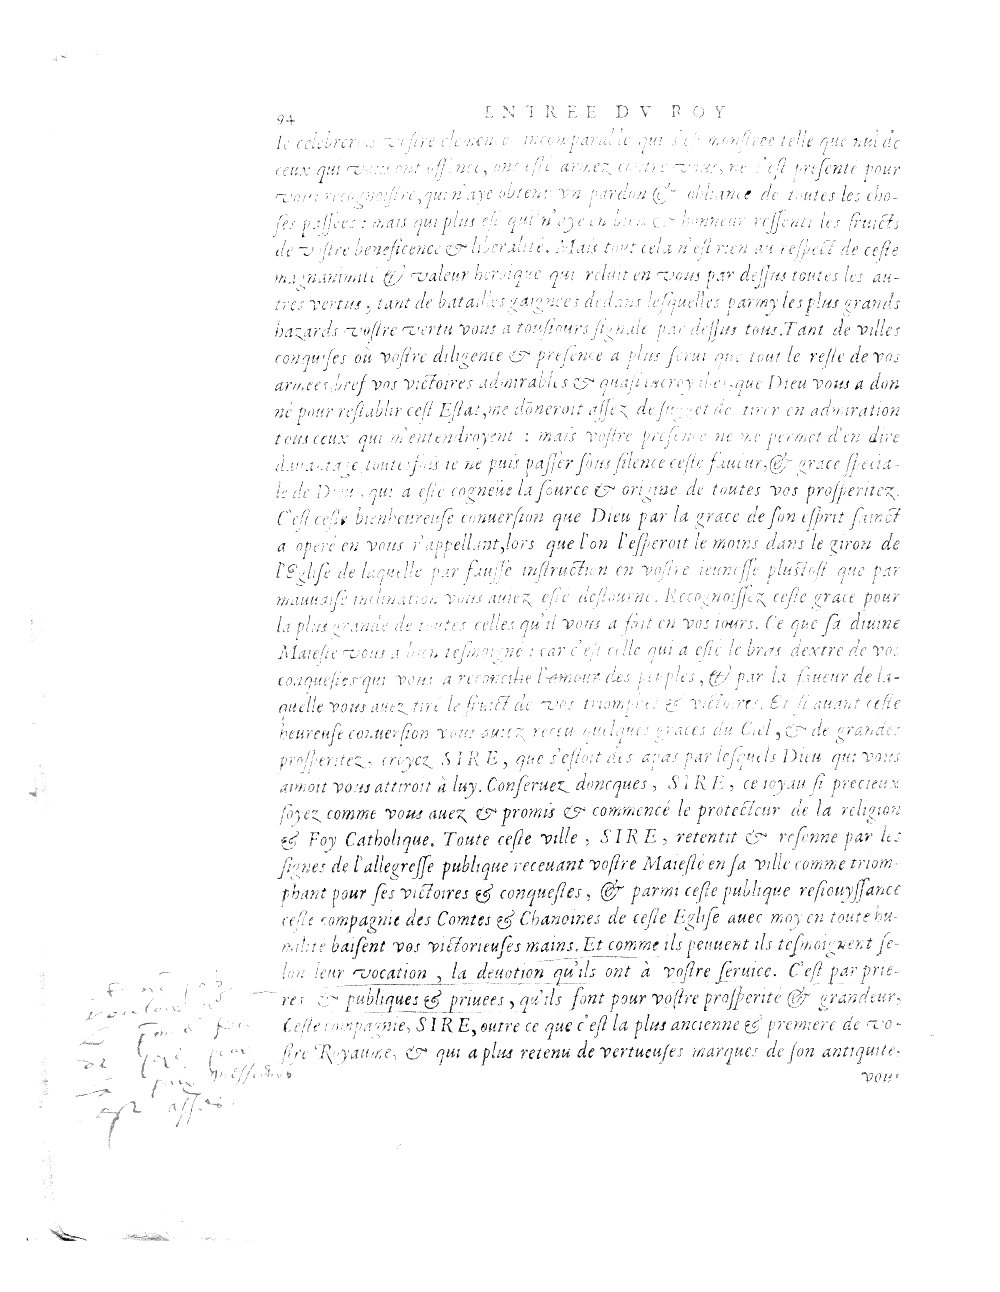 94 ENTREE DV ROY
Ie celebrer vostre clemence incomparable qui s'est monstree telle que nul de
ceux qui vous ont offencé, ont esté armez contre vous, ne s'est presenté pour
vous recognoistre, qui n'aye obtenu vn pardon & obliance de toutes les cho-
ses passées: mais qui plus est qui n'aye en bien & honneur ressenti les fruicts
de vostre beneficence & liberalité. Mais tout cela n'est rien au respect de ceste
magnanimité & valeur heroique qui reluit en vous par dessus toutes les au-
tres vertus, tant de batailles gaignees dedans lesquelles parmy les plus grands
hazards vostre vertu vous a tousiours signalé par dessus tous. Tant de villes
conquises ou vostre diligence & presence a plus serui que tout le reste de vos
armees, bref vos victoires admirables & quasi incroyables, que Dieu vous a don
né pour restablir cest Estat, me dōneroit assez de suget de tirer en admiration
tous ceux qui m'entendroyent : mais vostre presence ne me permet d'en dire
dauantage, toutesfois ie ne puis passer sous silence ceste faueur, & grace specia-
le de Dieu, qui a esté cogneüe la source & origine de toutes vos prosperitez.
C'est ceste bienheureuse conuersion que Dieu par la grace de son esprit sainct
a operé en vous r'appellant, lors que l'on l'esperoit le moins dans le giron de
l'Eglise de laquelle par fausse instruction en vostre ieunesse plustost que par
mauuaise inclination vous auiez esté destourné. Recognoissez ceste grace pour
la plus grande de toutes celles qu'il vous a fait en vos iours. Ce que sa diuine
Maiesté vous a bien tesmoigné : car c'est celle qui a esté le bras dextre de vos
conquestes qui vous a reconcilié l'amour des peuples, & par la faueur de la-
quelle vous auez tiré le fruict de vos triomphes & victoires. Et si auant ceste
heureuse conuersion vous auiez receu quelques graces du Ciel, & de grandes
prosperitez, croyez SIRE, que s'estoit des apas par lesquels Dieu qui vous
aimoit vous attiroit à luy. Conseruez doncques, SIRE, ce ioyau si precieux
soyez comme vous auez & promis & commencé le protecteur de la religion
& Foy Catholique. Toute ceste ville, SIRE, retentit & resonne par les
signes de l'allegresse publique receuant vostre Maiesté en sa ville comme triom-
phant pour ses victoires & conquestes, & parmi ceste publique resiouyssance
ceste compagnie des Comtes & Chanoines de ceste Eglise auec moy en toute hu-
milité baisent vos victorieuses mains. Et comme ils peuuent ils tesmoignent se-
lon leur vocation, la deuotion qu'ils ont à vostre seruice. C'est par prie-
res & publiques & priuees, qu'ils font pour vostre prosperité & grandeur.
Ceste compagnie, SIRE, outre ce que c'est la plus ancienne & premiere de vo-
stre Royaume, & qui a plus retenu de vertueuses marques de son antiquité.
vous